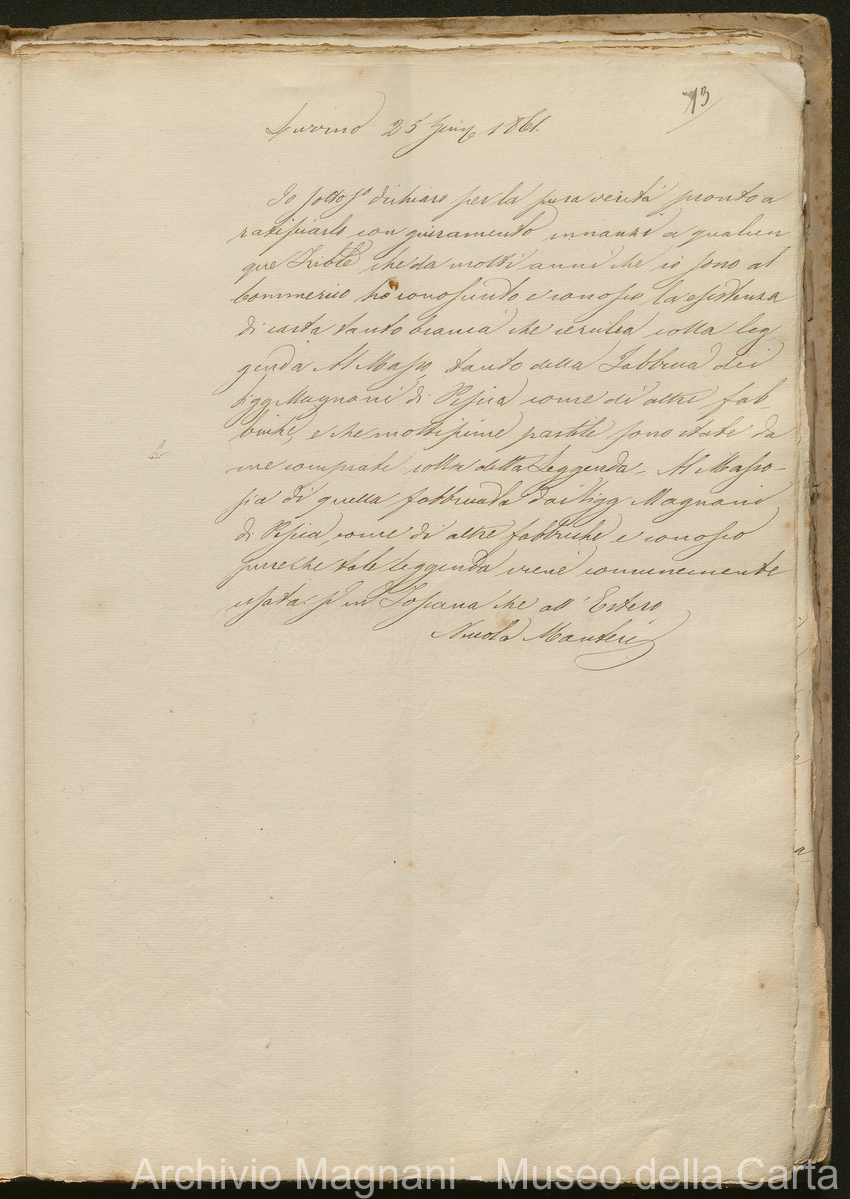 13
Livorno 25 Giug. 1861.
Io sottos.º dichiaro per la pura verità pronto a
ratificarlo con giuramento innanzi a qualun
que Trible che da molti anni che io sono al
Commercio ho conosciuto e conosco la esistenza
di carta tanto bianca che cerulea colla leg
genda Al Masso tanto della Fabbrica dei
Sigg Magnani di Pescia come di altre fab-
briche, e che moltissime partite sono state da
me comprate colla detta Leggenda - Al Masso -
sia di quella fabbricata dai Sigg Magnani
di Pescia come di altre fabbriche e conosco
pure che tale leggenda viene comunemente
usata in Toscana che all' Estero
Nicola Manteri
Archivio Magnani - Museo della Carta